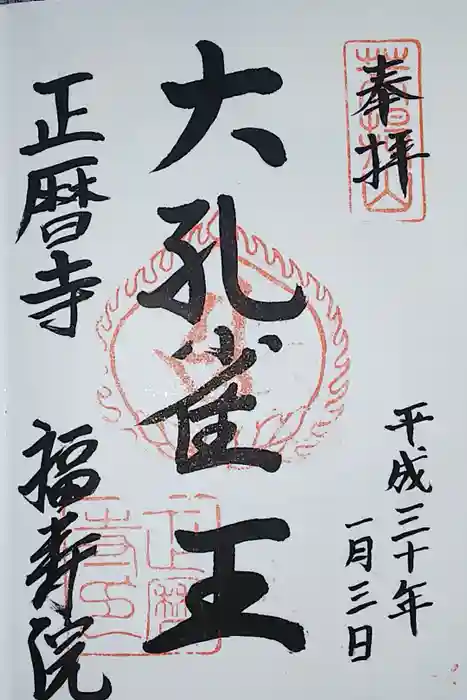 奉拝
平成三十年
一月三日
大孔雀王
正暦寺
福寿院